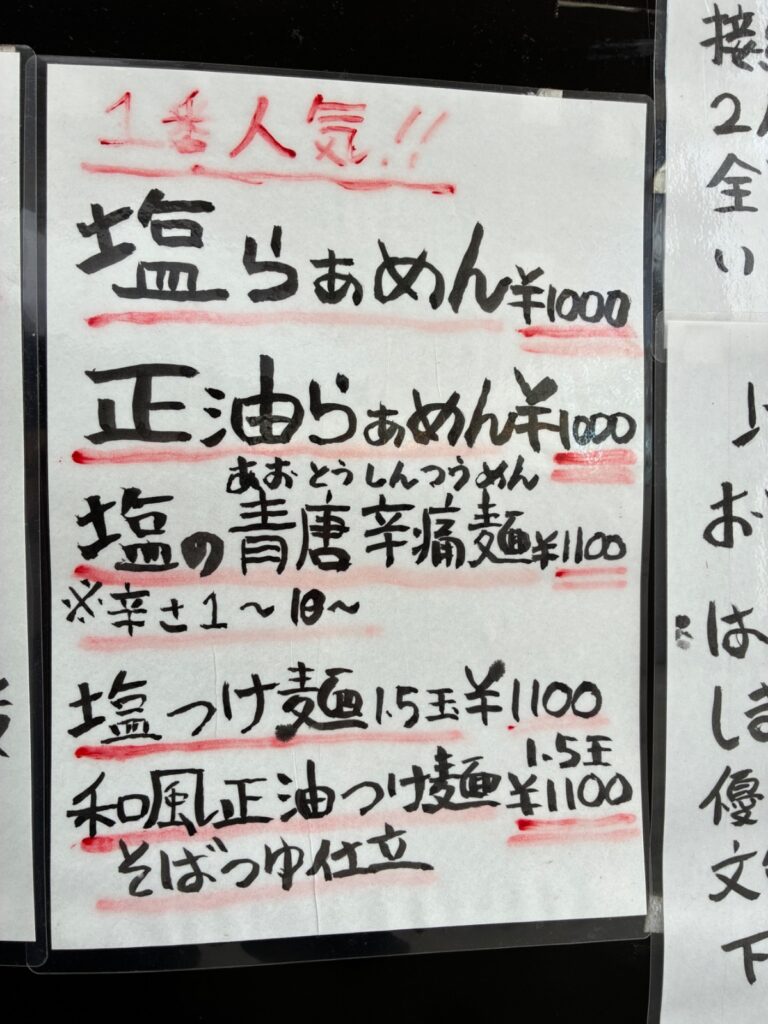 1番人気!!
塩らぁめん¥1000
正油らぁめん¥1000
あおとうしんつうめん
塩の青唐辛痛麺¥1100
※辛さ1〜10〜
塩つけ麺1.5玉¥1100
1.5玉
和風正油つけ麺¥1100
そばつゆ仕立
接
2人
全
い
お
は
し
優
文
下